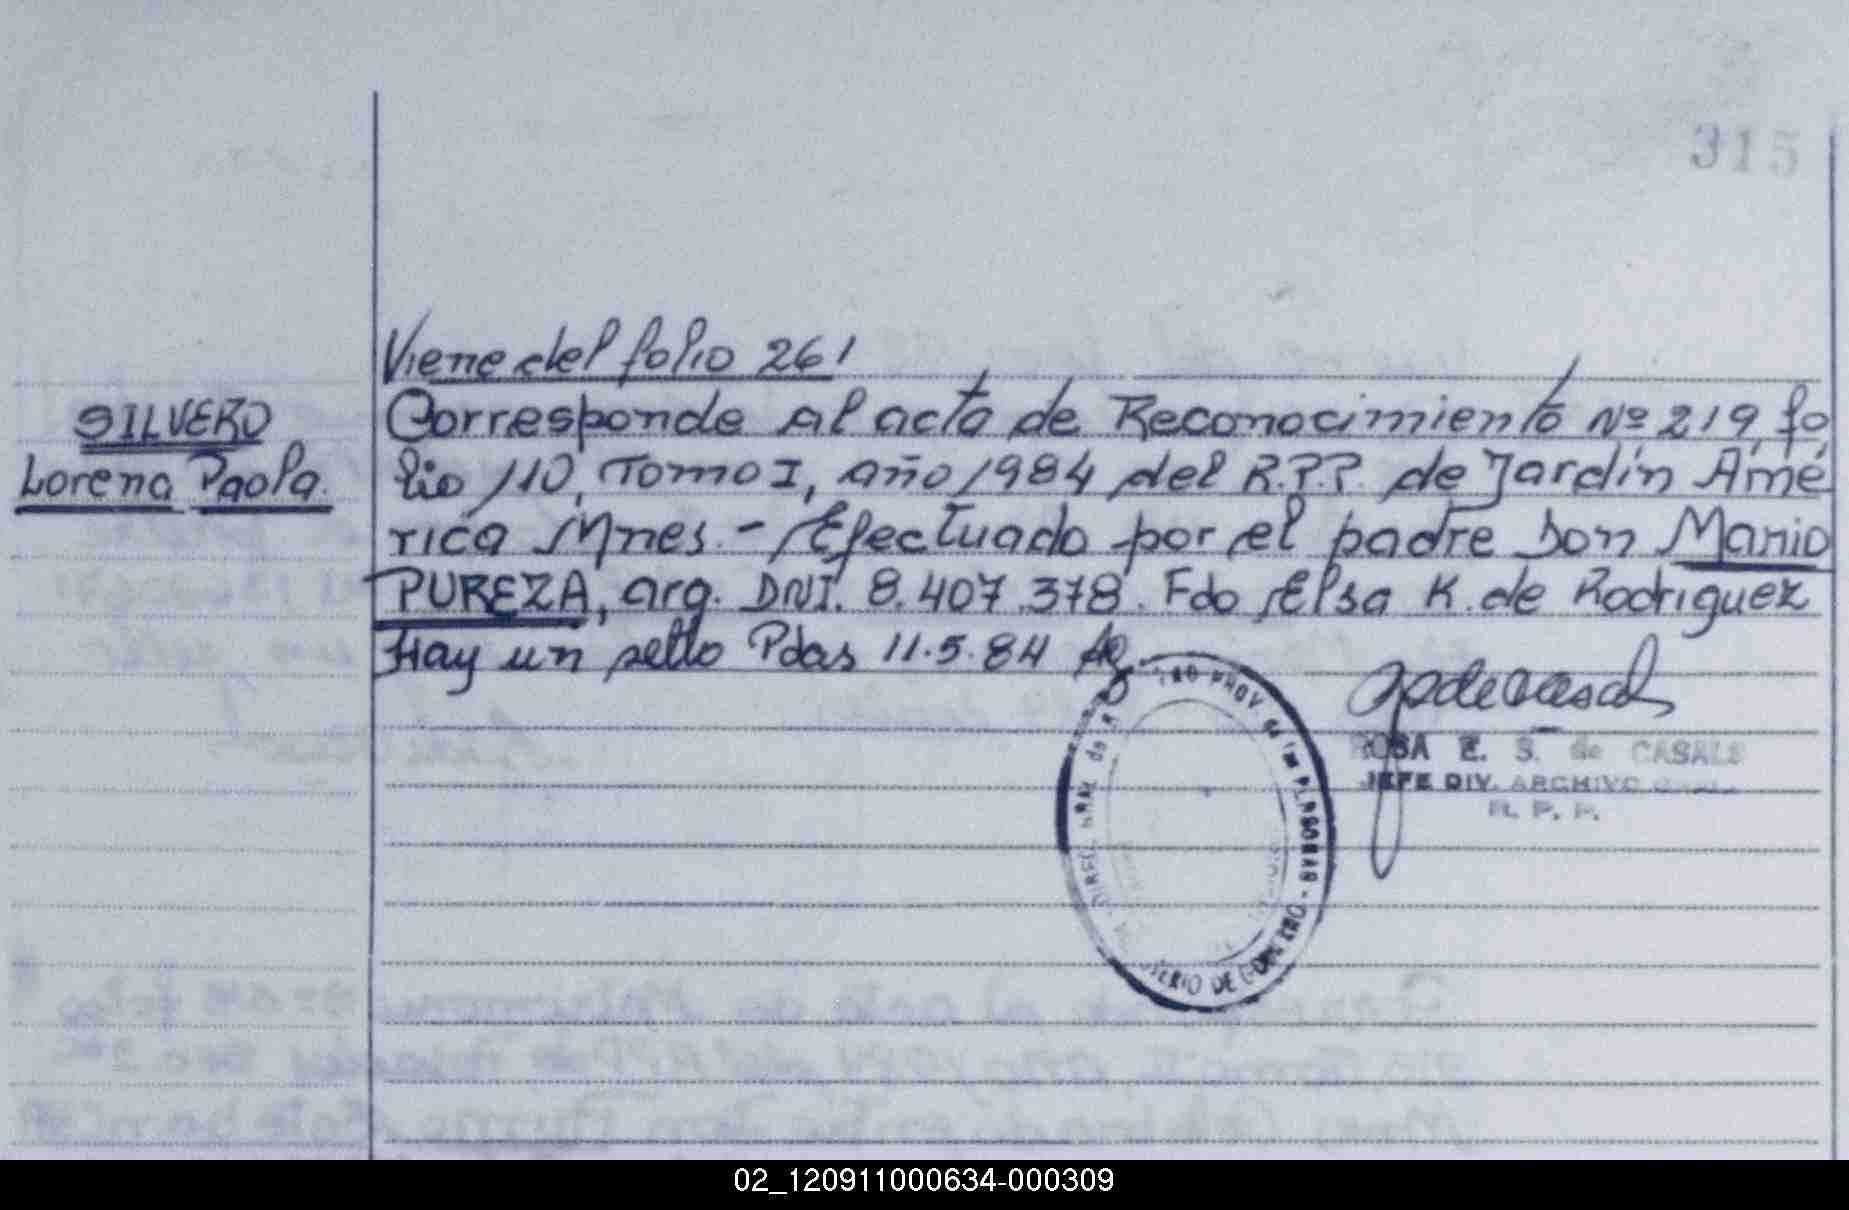 315
Viene del folio 261
SILVERO
Lorena Paola.
Corresponde al acta de Reconocimiento Nº 219, fo
lio 110, Tomo I, año 1984 del R.P.P. de Jardín Amé
rica Mnes. - Efectuado por el padre Don Mario
PUREZA, arg. DNI. 8.407.378. Fdo Elsa K. de Rodriguez
Hay un sello Pdas 11.5.84
ROSA E. S. de CASALS
JEFE DIV. ARCHIVO
R. P. P.
PROV. de las PERSONAS - DIREC. GRAL de
DE GOBIERNO
02_120911000634-000309